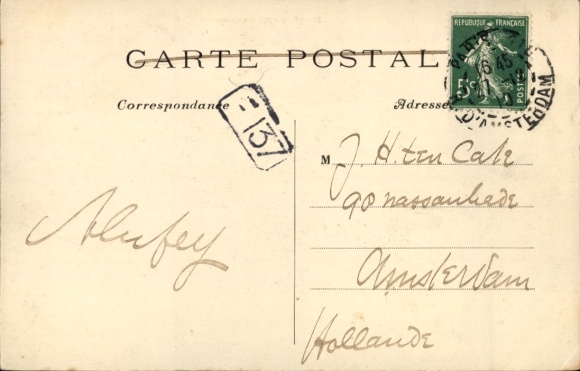 CARTE POSTALE
Correspondance
Adresse
REPUBLIQUE FRANÇAISE
5c
POSTES
PARIS
6 45
D'AMSTERDAM
137
M J. H. ten Cate
90 nassaukade
Amsterdam
Hollande